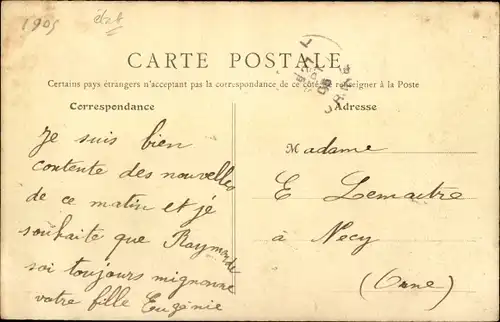 1905
CARTE POSTALE
Certains pays étrangers n'acceptant pas la correspondance de ce côté, se renseigner à la Poste
Correspondance
Je suis bien
contente des nouvelles
de ce matin et je
souhaite que Raymonde
soi toujours mignonne
votre fille Eugénie
Adresse
Madame
E Lemaitre
à Necy
(Orne)